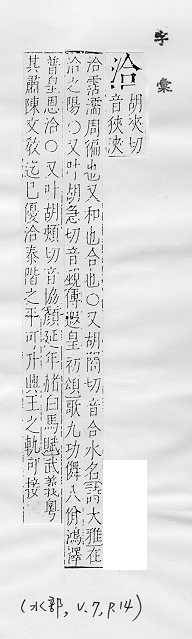 字彙
洽 胡夾切
音狹浹
洽霑濡周徧也又和也合也○又胡閤切音合水名詩大雅在
洽之陽○又叶胡急切音覡傅遐皇初頌歌九功儛八佾鴻澤
普皇恩洽○又叶胡頰切音協顏延年赭白馬賦武義粵
其肅陳文敎迄已優洽泰階之平可升興王之軌可接
(水部, V.7, P.14)